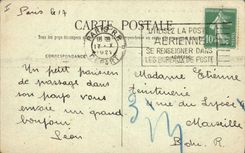 Paris le 17
CARTE POSTALE
PARIS R.P.
UTILISEZ LA POSTE
AÉRIENNE
SE RENSEIGNER DANS
LES BUREAUX DE POSTE
10
Un petit parisien
de passage dans
son pays vous
envoie un grand
bonjour
Léon
Madame Etienne
Teinturerie
rue du
Marseille